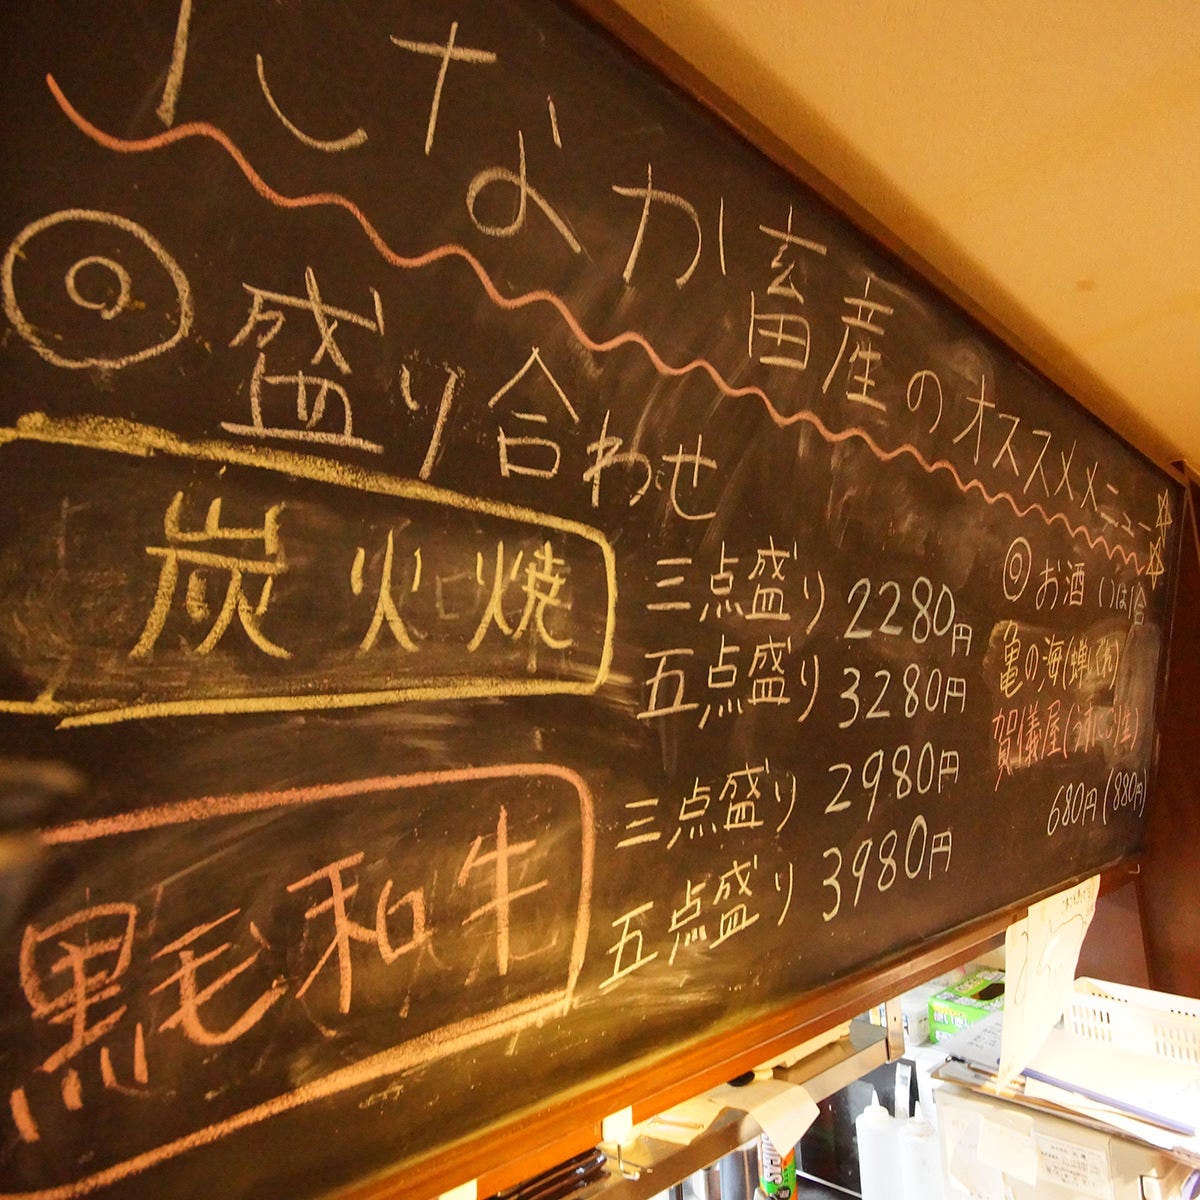 しなか畜産のオススメメニュー☆☆
◎盛り合わせ
炭火焼
三点盛り 2280円
五点盛り 3280円
黒毛和牛
三点盛り 2980円
五点盛り 3980円
◎お酒
亀の海
賀儀屋
680円(880円)